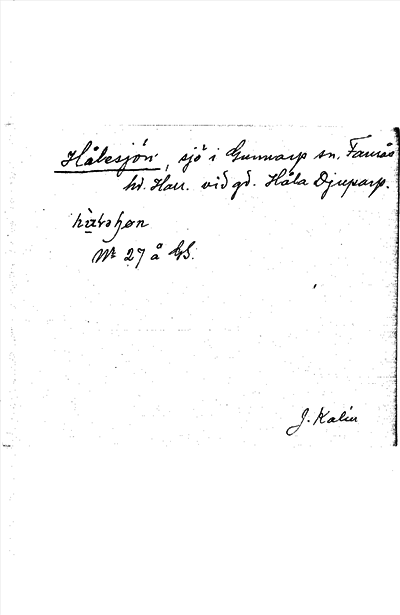 Hålesjön, sjö i Gunnarp sn. Faurås
hd. Hall. vid gd. Håla Djuparp.
Nr 27 å GS.
J. Kalén